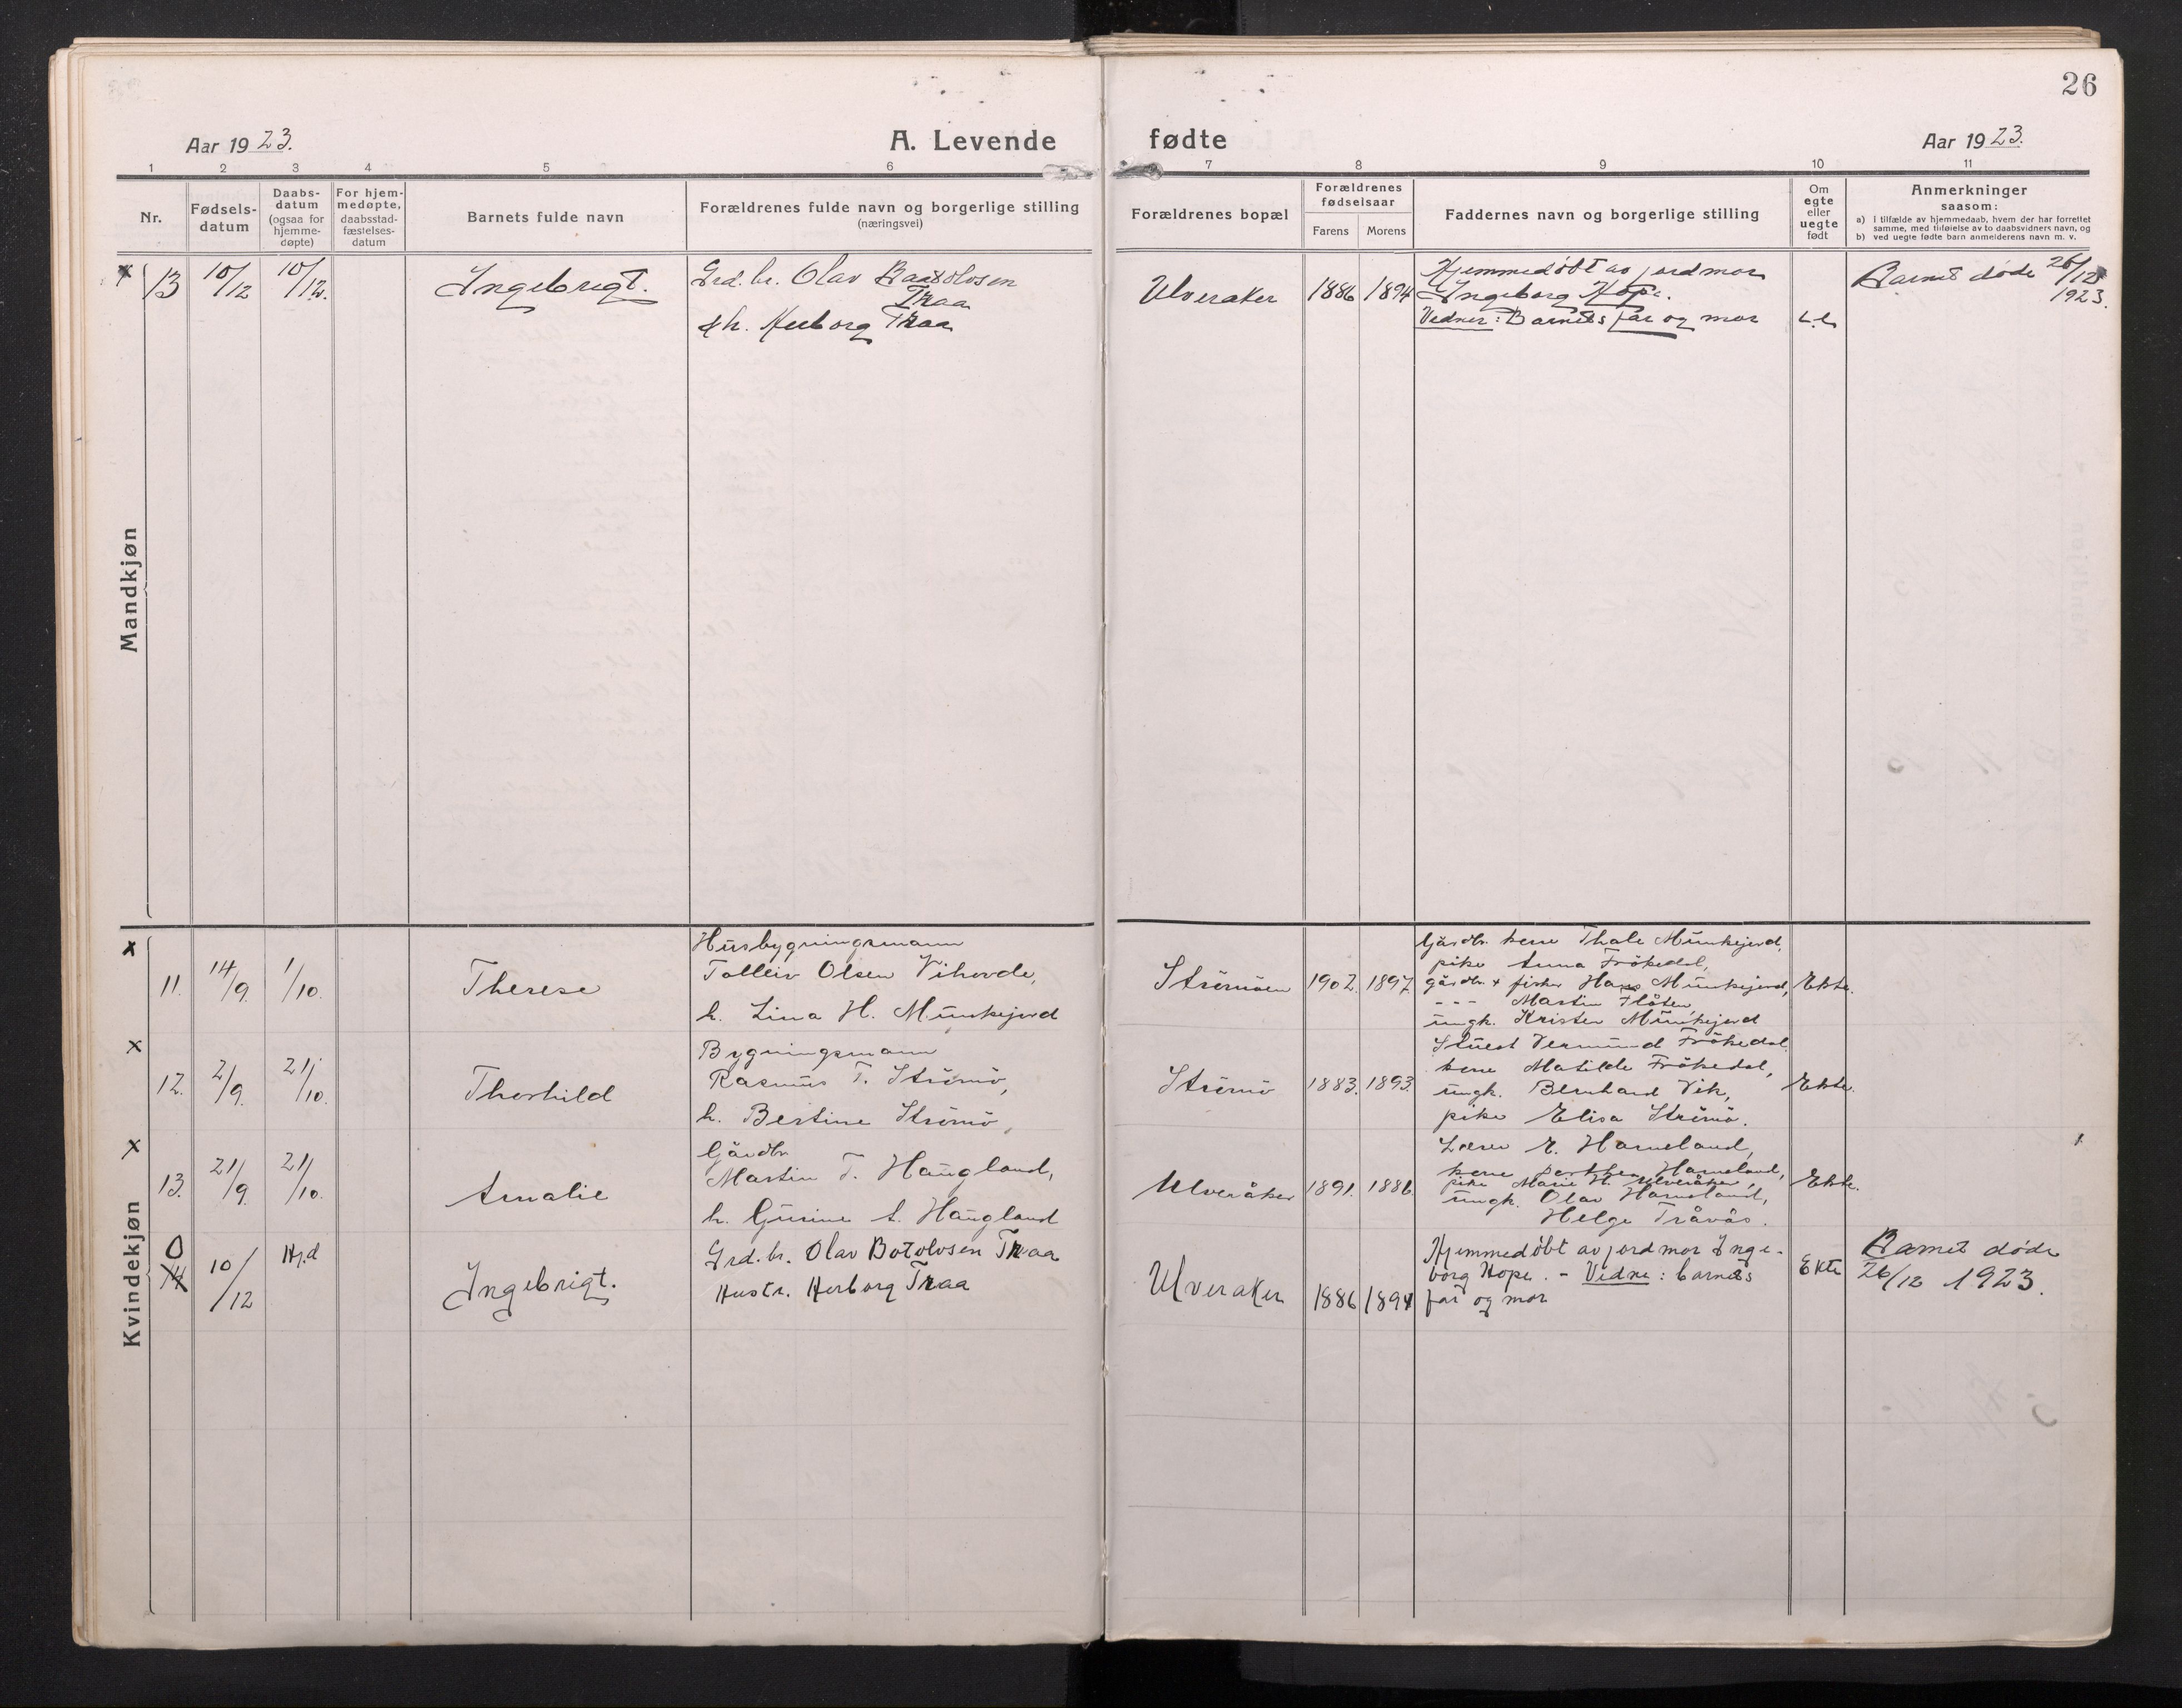 26
Aar 1923.
A. Levende
fødte
Aar 1923.
1 2 3 4 5 6 7 8 9 10 11
Nr.
Fødsels-
datum
Daabs-
datum
(ogsaa for
hjemme-
døpte)
For hjem-
medøpte,
daabsstad-
fæstelses-
datum
Barnets fulde navn
Forældrenes fulde navn og borgerlige stilling
(næringsvei)
Forældrenes bopæl
Forældrenes
fødselsaar
Farens Morens
Faddernes navn og borgerlige stilling
Om
egte
eller
uegte
født
Anmerkninger
saasom:
a) I tilfælde av hjemmedaab, hvem der har forrettet
samme, med tilføielse av to daabsvidners navn, og
b) ved uegte fødte barn anmelderens navn m. v.
Mandkjøn
x 13 10/12 10/12. Ingebrigt.
Grd. br. Olav
Traa
& h. Herborg Traa
Ulveraker 1886 1894
Hjemmedöbt av jordmor
Ingeborg Hope.
Vidner: Barnets far og mor
Barnet døde 26/12
1923.
Kvindekjøn
x 11. 14/9. 1/10. Therese
Husbygningsmann
Tolleiv Olsen Vihovde,
h. Lina H. Munkejord
Strömöen 1902. 1897.
Gårdbr. kone Thale Munkejord,
pike Anna Frökedal,
gårdbr. & fisker Hans Munkejord,
- - - Martin Flöten,
ungk. Krister Munkejord
Ekte.
x 12. 2/9. 21/10. Thorhild
Bygningsmann
Rasmus T. Strömö,
h. Bertine Strömö,
Strömö 1883. 1893.
Vermund Frökedal.
kone Matilde Frökedal,
ungk. Bernhard Vik,
pike Elisa Strömö.
Ekte.
x 13. 21/9. 21/10. Amalie
Gårdbr.
Martin T. Haugland,
h. Gurine A. Haugland
Ulveråker 1891. 1886.
Lærer E. Hameland,
kone Hameland,
pike Marie H. Ulveråker,
ungk. Olav Hameland,
Helge Tråvås.
Ekte.
0
14 10/12 Hj.d Ingebrigt.
Grd. br. Olav Botolvsen Traa
Hustr. Herborg Traa
Ulveraker 1886 1894
Hjemmedöbt av jordmor Inge-
borg Hope. - Vidne: barnets
far og mor
Ekte
Barnet døde
26/12 1923.